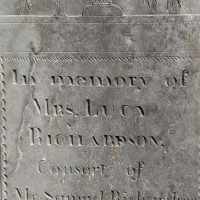 In memory of
Mrs. Lucy
Richardson,
Consort of
Mr. Samuel Richardson